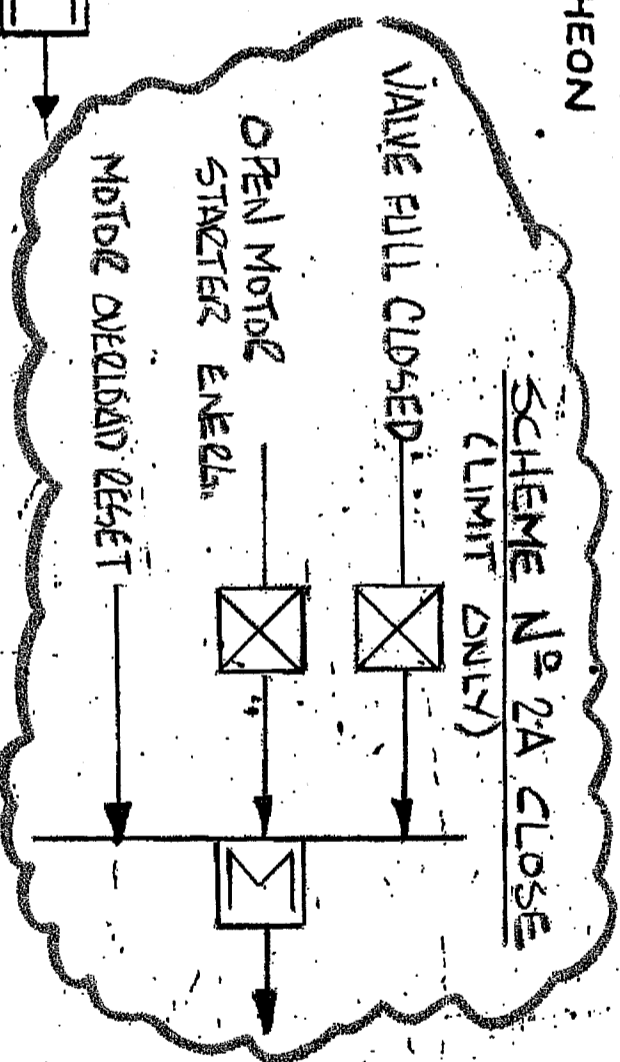 HEON
SCHEME Nº 2A CLOSE
(LIMIT ONLY)
VALVE FULL CLOSED
OPEN MOTOR
STARTER ENERG.
MOTOR OVERLOAD RESET
M